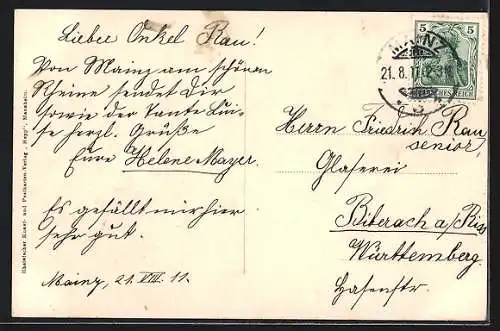 Lieber Onkel Rau!
Von Mainz am schönen
Rheine sendet Dir
sowie der Tante Lui-
se herzl. Grüße
Eure Helene Mayer.
Es gefällt mir hier
sehr gut.
Mainz, 21. VIII. 11.
Herrn Friedrich Rau
senior,
Glaserei
Biberach a/Riss
Württemberg.
Hasenstr.
5 5
MAINZ
21.8.11
Rheinischer Kunst- und Postkarten-Verlag „Hepp", Mannheim.